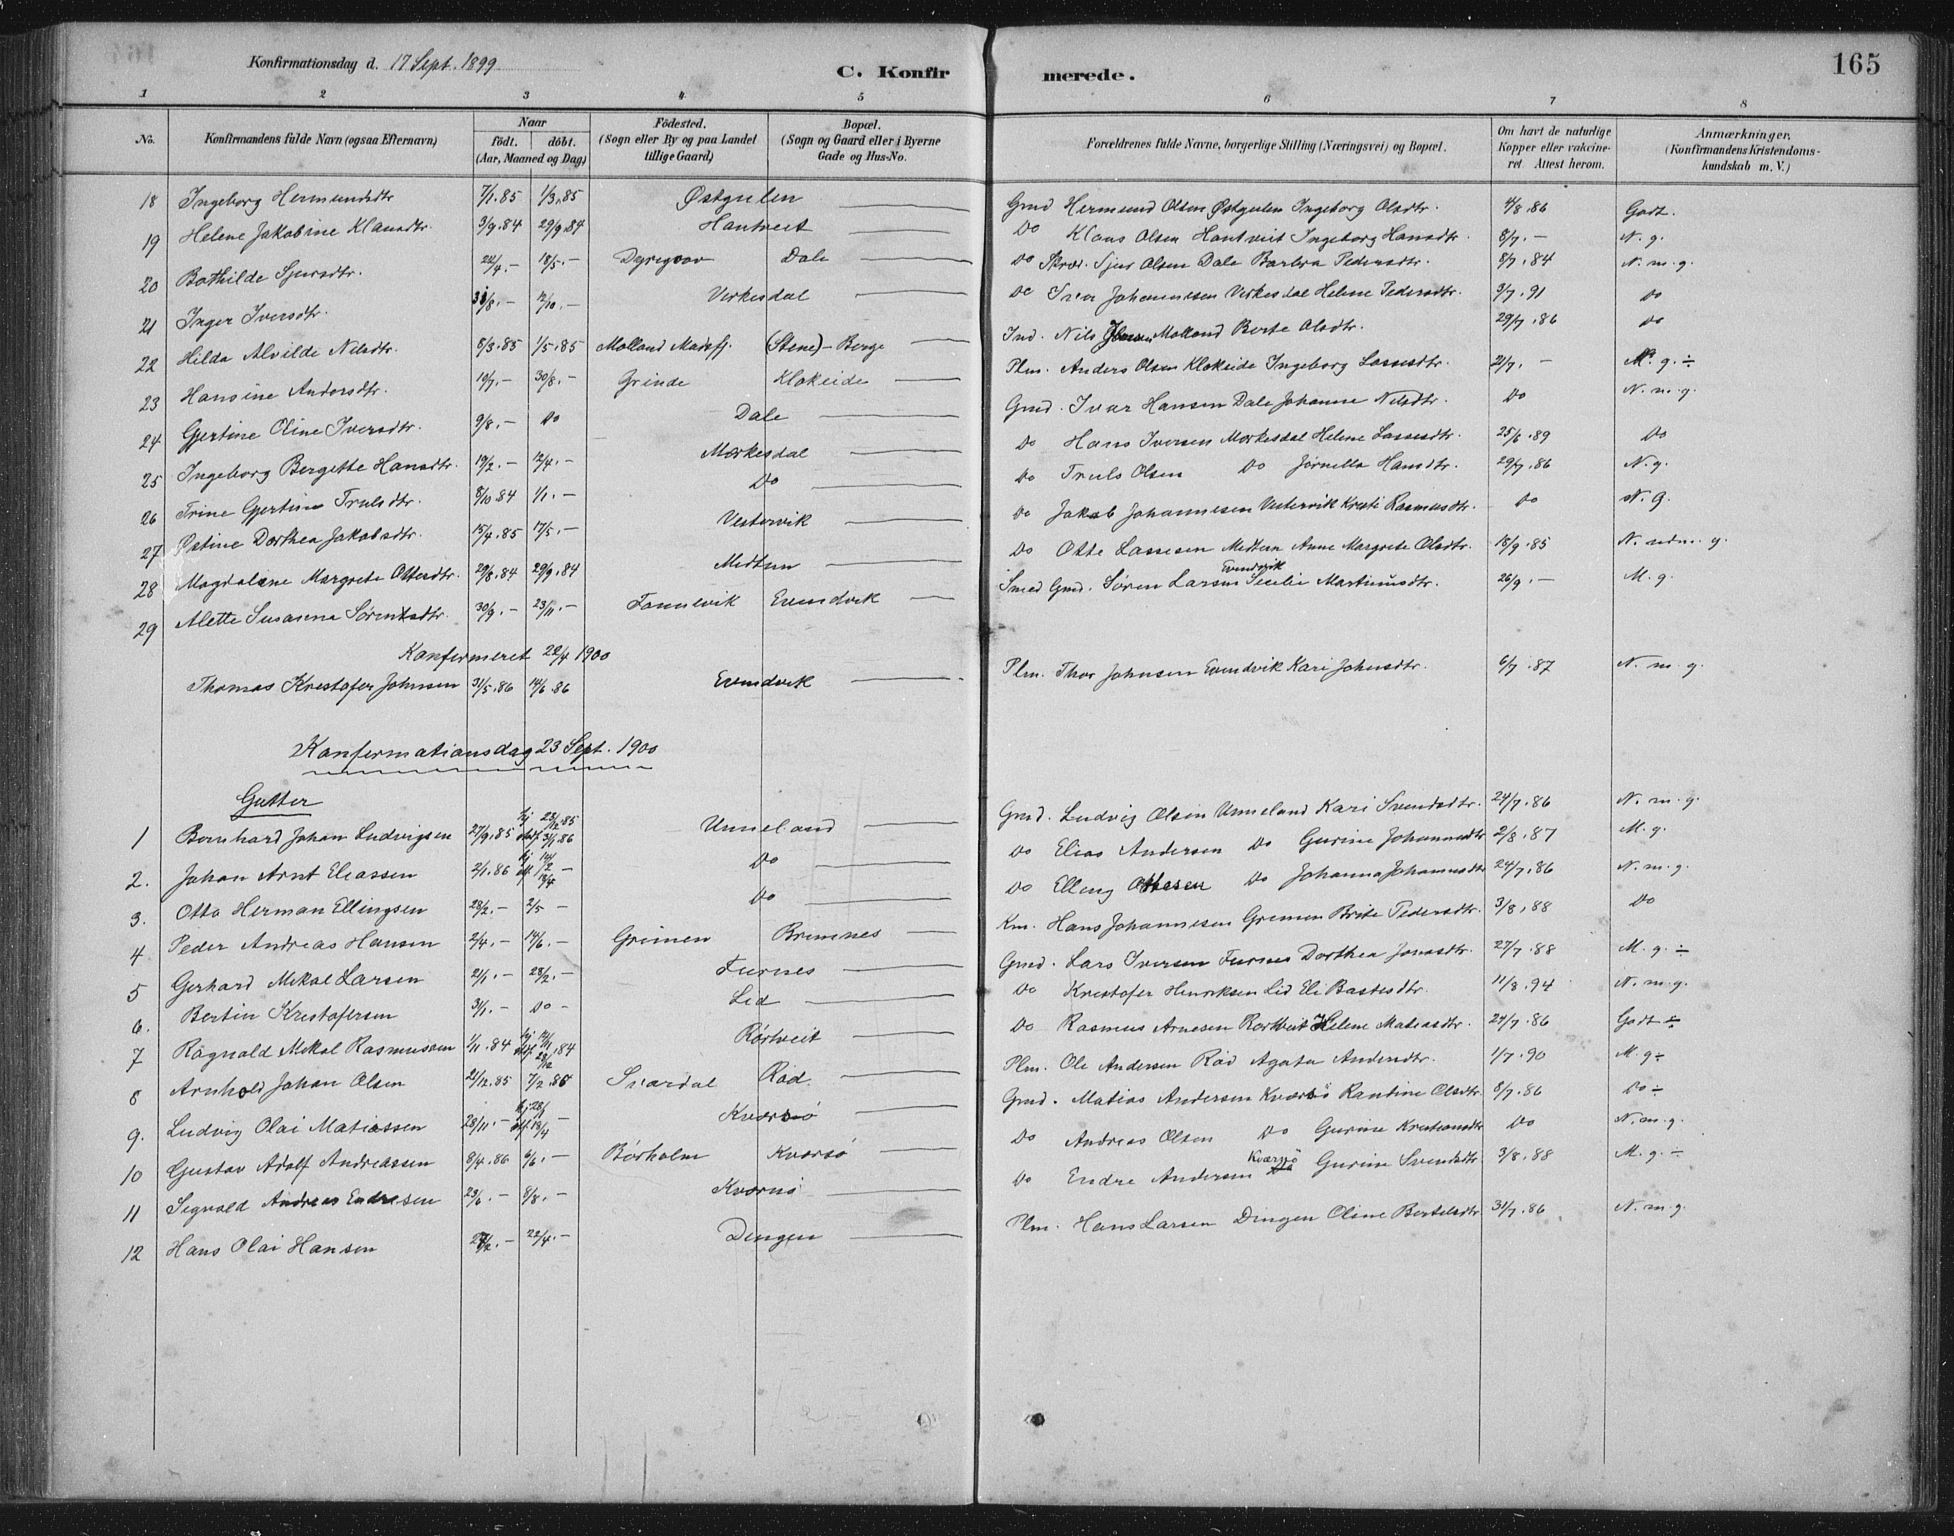 Konfirmationsdag d. 17 Sept. 1899
C. Konfirmerede.
165
1 2 3 4 5 6 7 8
No. Konfirmandens fulde Navn (ogsaa Efternavn) Naar födt. döbt. (Aar, Maaned og Dag) Födested. (Sogn eller By og paa Landet tillige Gaard) Bopæl. (Sogn og Gaard eller i Byerne Gade og Hus-No. Forældrenes fulde Navne, borgerlige Stilling (Næringsvei) og Bopæl. Om havt de naturlige Kopper eller vakcineret. Attest herom. Anmærkninger, (Konfirmandens Kristendomskundskab m. V.)
18 Ingeborg Hermundsdtr 7/1.85 1/3.85 Østgulen Gmd Hermund Olsen Østgulen Ingeborg Olsdtr. 4/8.86 Godt.
19 Helene Jakobine Klausdtr. 3/9.84 29/9.84 Hantveit Do Klaus Olsen Hantveit Ingeborg Hansdtr. 8/7.- N. g.
20 Bothilde Sjursdtr. 22/4.- 18/5.- Dyregrov Dale Do Skræd. Sjur Olsen Dale Barbra Pedersdtr. 8/7.84 N. m. g.
21 Inger Iversdtr. 31/8.- 12/10.- Virkesdal Do Iver Johannesen Virkesdal Helene Pedersdtr. 9/7.91 Do
22 Hilda Alvilde Nilsdtr. 8/3.85 1/5.85 Molland Masfj. (Stene) - Berge Ind. Nils Molland Berte Olsdtr. 29/7.86 Do
23 Hansine Andersdtr. 10/7.- 30/8.- Grinde Klokeide Plm. Anders Olsen Klokeide Ingeborg Lassesdtr. 21/7.- M. g. ÷
24 Gjertine Oline Iversdtr. 9/8.- Do Dale Gmd. Ivar Hansen Dale Johanne Nilsdtr. Do N. m. g
25 Ingeborg Bergitte Hansdtr. 19/2.- 12/4.- Mørkesdal Do Hans Iversen Mørkesdal Helene Lassesdtr. 25/6.89 Do
26 Trine Gjertine Trulsdtr. 8/10.84 1/1.- Do Do Truls Olsen Do Jørnella Hansdtr. 29/7.86 N. g.
27 Østine Dorthea Jakobsdtr. 15/4.85 17/5.- Vestervik Do Jakob Johannesen Vestervik Kristi Rasmusdtr. Do N. g.
28 Magdalene Margrete Ottesdtr. 29/8.84 29/9.84 Midtun Do Otte Lassesen Midtun Anne Margrete Olsdtr. 18/9.85 N. udm. g.
29 Alette Susanna Sørensdtr. 30/9.- 23/11.- Fonnevik Evendvik Smed Gmd. Søren Larsen Evendvik Secilie Martinusdtr. 26/9.- M. g.
Konfermeret 22/4 1900
Thomas Kristofer Johnsen 31/5.86 14/6.86 Evendvik Plm. Thor Johnsen Evendvik Kari Johnsdtr. 6/7.87 N. m. g.
Konfermationsdag 23 Sept. 1900
Gutter
1 Bernhard Johan Ludvigsen 27/9.85 hj 23/12.85 stdf. 3/1.86 Unneland Gmd. Ludvig Olsen Unneland Kari Svendsdtr. 24/7.86 N. m. g.
2. Johan Arnt Eliassen 2/1.86 Do Do Elias Andersen Do Gurine Johannesdtr 2/8.87 M. g.
3. Otto Herman Ellingsen 28/2.- 2/5- Do Do Elling Ottesen Do Johanna Johannesdtr 24/7.86 N. m. g.
4 Peder Andreas Hansen 2/4.- 14/6.- Grimen Brimnes Km. Hans Johannesen Gremen Brite Pedersdtr. 3/8.88 Do
5 Gerhard Mikal Larsen 21/1.- 28/2.- Furnes Gmd. Lars Iversen Furnes Dorthea Jonsdtr. 27/7.88 M. g ÷
6. Bertin Kristofersen 3/1.- Do - Lid Do Kristofer Henriksen Lid Eli Bastesdtr. 11/8.94 N. m. g.
7 Ragnald Mikal Rasmussen 1/11.84 hj 12/11 stdf. 28/12.84 Rørtveit Do Rasmus Arnesen Rortveit Helene Matiasdtr. 24/7.86 Godt ÷
8 Arnhold Johan Olsen 21/12.85 7/2.86 Sværdal Rød. Plm. Ole Andersen Rød Agata Andersdtr. 1/7.90 M. g ÷
9. Ludvig Olai Matiassen 28/11.- hj 28/1 stf. 18/4 - Kværsø Gmd. Matias Andersen Kværsö Rantine Olsdtr. 8/7.86 Do ÷
10 Gustav Adolf Andreassen 8/4.86 6/6.- Børholm Kværsø Do Andreas Olsen Do Gurine Kristiansdtr Do N. m. g.
11 Segvald Andreas Endresen 23/6.- 8/8.- Kværnø Do Endre Andersen Kværsö Gurine Svendsdtr. 3/8.88 M. g. ÷
12 Hans Olai Hansen 27/2.- 22/4.- Dingen Plm. Hans Larsen Dingen Oline Bertelsdtr 31/7.86 N. m. g.